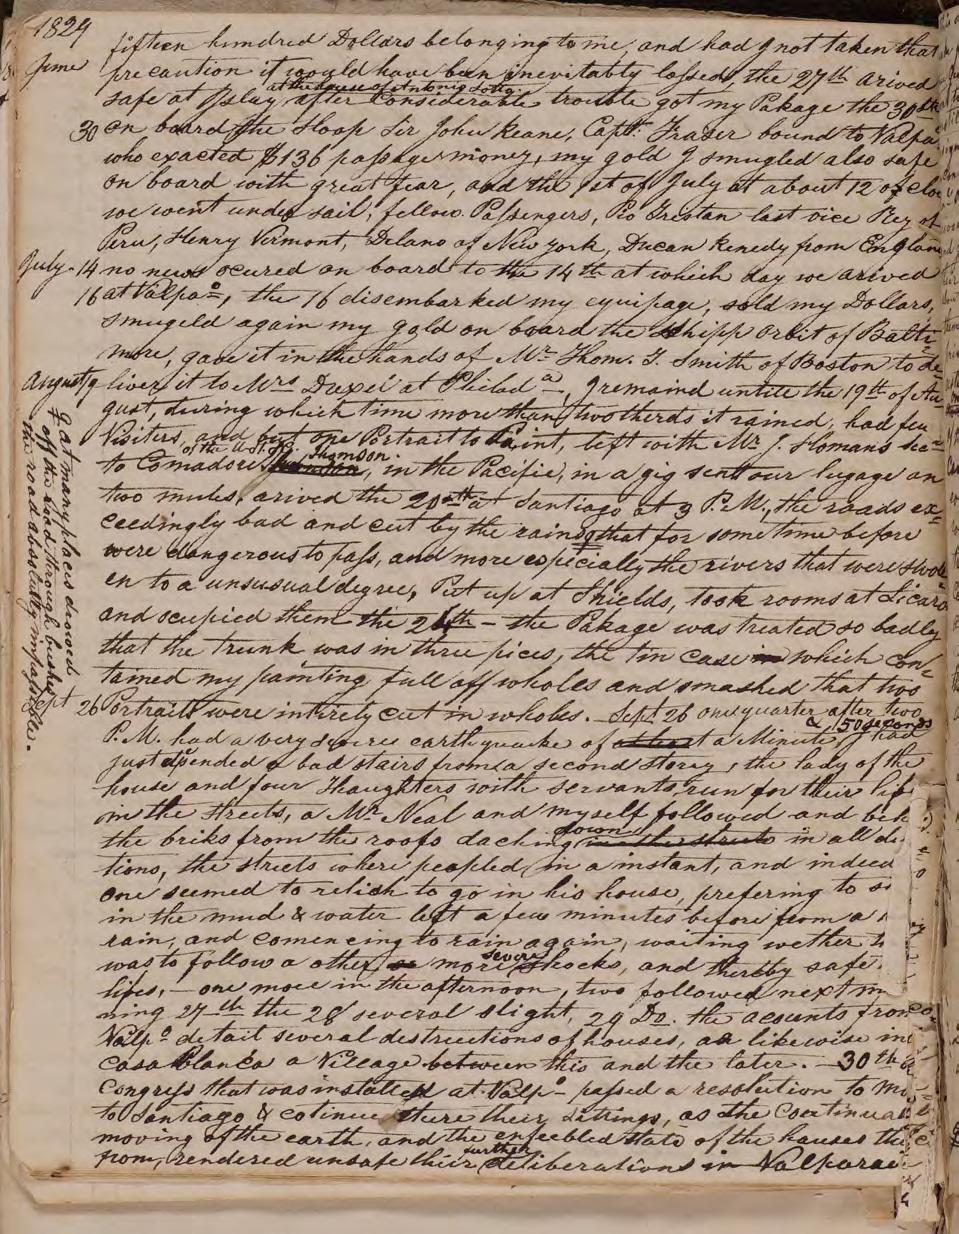 1824
fifteen hundred Dollars belonging to me, and had I not taken that
June precaution it would have been inevitably lossed, the 27th arived
at the house of Antonio
safe at Islay, after Considerable trouble got my Pakage the 30th
30 on board the Sloop Sir John Keane, Captn. Fraser bound to Valpa
who exacted $136 passage money, my gold I smugled also safe
on board with great fear, and the 1st of July at about 12 of clo
we went under sail, fellow Passengers, Pio Trestan last vice Rey of
Peru, Henry Vermont, Delano of New York, Ducan Kenedy from England
July 14 no news ocured on board to the 14th at which day we arived
16 at Valpao, the 16 disembarked my equipage, sold my Dollars,
smugeld again my gold on board the Shipp Orbit of Balti=
more, gave it in the hands of Mr Thom. T. Smith of Boston to de
August 19 liver it to Mrs at Philada, I remaind untile the 19th of Au
gust, during which time more than two therds it rained, had feu
Visiters, and but one Portrait to Paint, left with Mr J. Homans
of the U.S.
to Comadore in the Pacific, in a gig sent our lugage on
two mules, arived the 20th at Santiago at 3 P.M., the roads ex=
ceedingly bad and cut by the rains, that for some time before
were dangerous to pass, and more especially the rivers that were swoll
en to a unusual degree, Put up at Shields, took rooms at
and ocupied them the — the Pakage was treated so badly
that the trunk was in three pices, the tin case in which con=
tained my painting full off wholes and smashed that two
Sept 26 Portraits were intirely cut in wholes. — Sept. 26 one quarter after two
& 50 seconds
P.M. had a very severe earthquake of a Minute, I had
just a bad stairs from a second storey, the lady of the
house and four Thaughters with servants run for their lif
in the streets, a Mr Neal and myself followed and beh
down
the briks from the roofs daching in the streets in all di
tions, the streets where peopled in a instant, and indeed
one seemed to relich to go in his house, prefering to
in the mud & water left a few minutes before from a
rain, and comencing to rain again, waiting wether
severe
was to follow a other, or more shocks, and thereby safe
lifes, — one more in the afternoon, two followed next m
ning 27th the 28 several slight, 29 Do. the acounts from
Valpo detail several destructions of houses, as likewise in
Casa Blanka a Village between this and the later. — 30th
Congress that was installed at Valpo passed a resolution to mo
to Santiago & cotinue there their sittings, as the Coontinual
moving of the earth, and the enfeebled state of the houses the
further
from, rendered unsafe their deliberations in Valparai
+ at many places drowed
off the road through bushes
the road absolutely impassible.